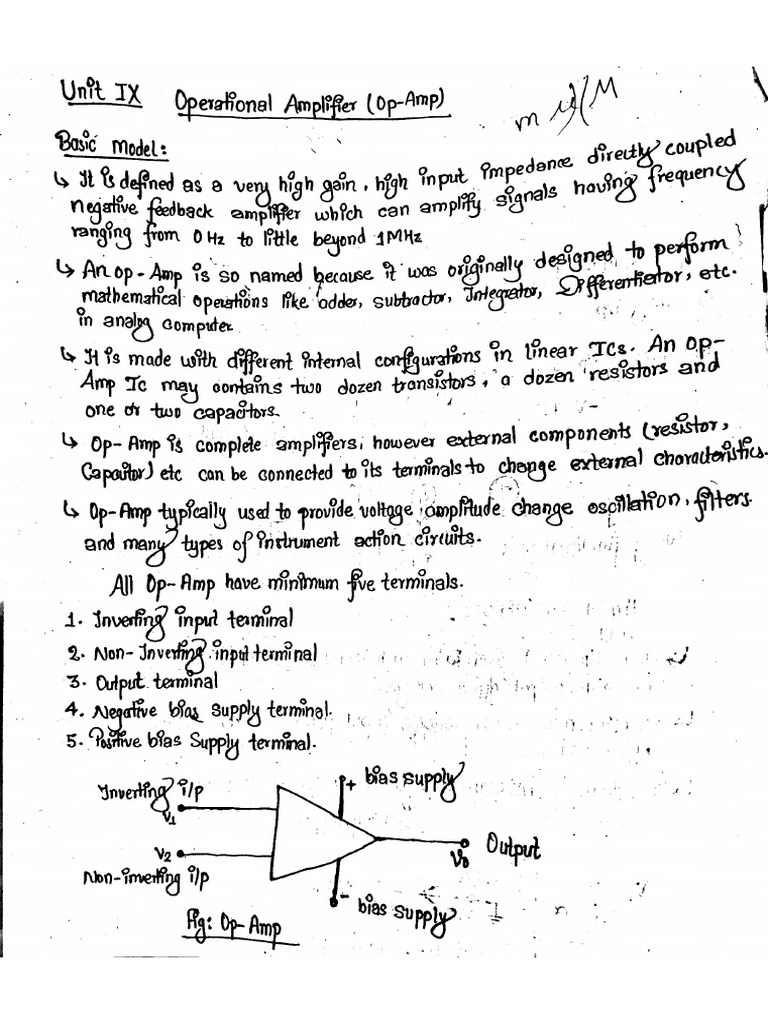 Unit IX Operational Amplifier (Op-Amp)
Basic Model:
↳ It is defined as a very high gain, high input impedance directly coupled
negative feedback amplifier which can amplify signals having frequency
ranging from 0 Hz to little beyond 1MHz
↳ An op-Amp is so named because it was originally designed to perform
mathematical operations like adder, subtractor, Integrator, Differentiator, etc.
in analog computer.
↳ It is made with different internal configurations in linear ICs. An OP-
Amp Ic may contains two dozen transistors, a dozen resistors and
one or two capacitors.
↳ Op-Amp is complete amplifiers, however external components (resistor,
Capacitor) etc can be connected to its terminals to change external characteristics.
↳ Op-Amp typically used to provide voltage amplitude change oscillation, filters
and many types of instrument action circuits.
All Op-Amp have minimum five terminals.
1. Inverting input terminal
2. Non-Inverting input terminal
3. Output terminal
4. Negative bias supply terminal.
5. Positive bias Supply terminal.
Inverting i/p
V1
+ bias supply
V2
Non-inverting i/p
V0
Output
- bias supply
Fig: Op-Amp